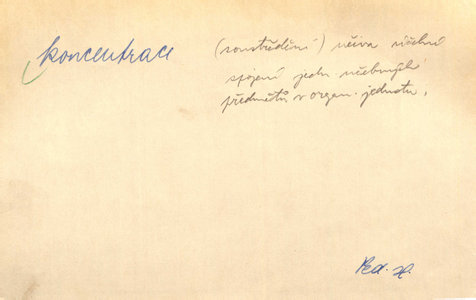 koncentrace
(soustředění) učiva účelné
spojení jedn. učebných
předmětů v organ. jednotu.
Ped. sl.